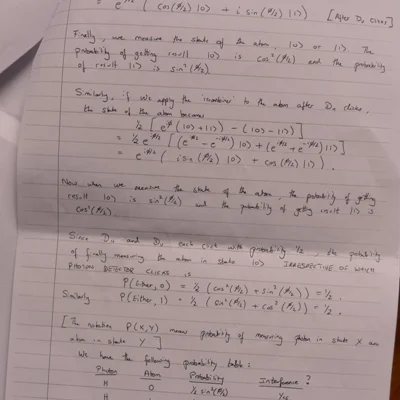 = e^{iφ/2} [ cos(φ/2) |0> + i sin(φ/2) |1> ] [After D_v clicks]
Finally, we measure the state of the atom, |0> or |1>. The
probability of getting result |0> is cos²(φ/2) and the probability
of result |1> is sin²(φ/2)
Similarly, if we apply the to the atom after D_H clicks,
the state of the atom becomes
1/2 [ e^{iφ} (|0> + |1>) - (|0> - |1>) ]
= 1/2 e^{iφ/2} [ (e^{iφ/2} - e^{-iφ/2}) |0> + (e^{iφ/2} + e^{-iφ/2}) |1> ]
= e^{iφ/2} ( i sin(φ/2) |0> + cos(φ/2) |1> ).
Now when we measure the state of the atom, the probability of getting
result |0> is sin²(φ/2) and the probability of getting result |1> is
cos²(φ/2).
Since D_H and D_v each click with probability 1/2, the probability
of finally measuring the atom in state |0> IRRESPECTIVE OF WHICH
PHOTON DETECTOR CLICKS is
P(Either, 0) = 1/2 (cos²(φ/2) + sin²(φ/2)) = 1/2.
Similarly P(Either, 1) = 1/2 (sin²(φ/2) + cos²(φ/2)) = 1/2.
[ The notation P(X,Y) means probability of measuring photon in state X and
atom in state Y ]
We have the following probability table:
Photon Atom Probability Interference?
H 0 1/2 sin²(φ/2) Yes
H